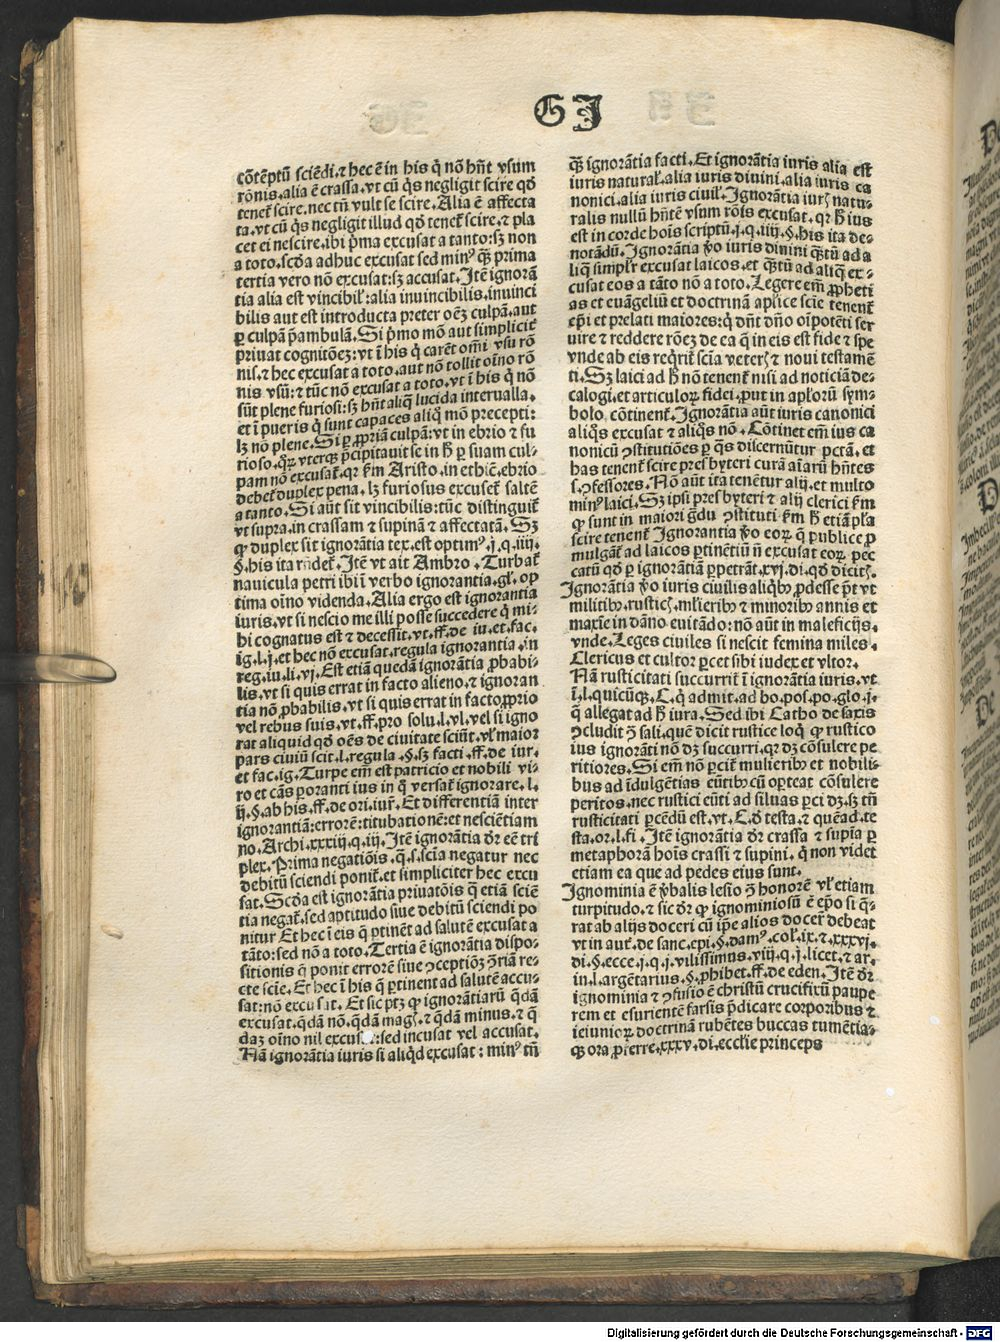 GI
cõtẽptũ sciẽdi.⁊ hec ẽ in his q̃ nõ hñt vsum
rõnis.alia ẽ crassa.vt cũ q̃s negligit scire qð
tenet̃ scire.nec tñ vult se scire.Alia ẽ affecta
ta.vt cũ q̃s negligit illud qð tenet̃ scire.⁊ pla
cet ei nescire.ibi p̃ma excusat a tanto:sꝫ non
a toto.scða adhuc excusat sed minꝰ q̃ꝫ prima
tertia vero nõ excusat:sꝫ accusat.Itẽ ignorã
tia alia est vincibil̃:alia inuincibilis.inuinci
bilis aut est introducta preter oẽꝫ culpã.aut
ꝑ culpã p̃ambulã.Si p̃mo mõ aut simplicit̃
priuat cognitõeꝫ:vt ĩ his q̃ carẽt om̃i vsu rõ
nis.⁊ hec excusat a toto.aut nõ tollit oĩno rõ
nis vsũ:⁊ tũc nõ excusat a toto.vt ĩ his q̃ nõ
sũt plene furiosi:sꝫ hñt aliq̃ lucida interualla.
et ĩ pueris q̃ sunt capaces aliq̃ mõ precepti:
lꝫ nõ plene.Si ꝑ ꝓpriã culpã:vt in ebrio ⁊ fu
rioso.q̃ꝝ vterqꝫ p̃cipitauit se in h̃ ꝑ suam cul-
pam nõ excusat̃.qꝛ ẜm Aristo.in ethic̃.ebrio
debet̃ duplex pena.lꝫ furiosus excuset̃ saltẽ
a tanto.Si aũt sit vincibilis:tũc distinguit̃
vt supra.in crassam ⁊ supinã ⁊ affectatã.Sꝫ
ꝙ duplex sit ignorãtia tex.est optimꝰ.j.q.iiij.
§.his ita rñdet̃.Itẽ vt ait Ambro.Turbat̃
nauicula petri ibi ĩ verbo ignorantia.gl̃.op
tima oĩno videnda.Alia ergo est ignorantia
iuris.vt si nescio me illi posse succedere q̃ mi-
hi cognatus est ⁊ decessit.vt.ff.de iu.et fac.
ig.l.j.et hec nõ excusat.regula ignorantia.in
reg.iu.li.vj.Est etiã quedã ignorãtia ꝓbabi-
lis.vt si quis errat in facto alieno.⁊ ignoran
tia nõ ꝓbabilis.vt si quis errat in facto ꝓprio
vel rebus suis.vt.ff.pro solu.l.vl.vel si igno
rat aliquid qð oẽs de ciuitate sciũt.vl̃ maior
pars ciuiũ scit.l.regula.§.sꝫ facti.ff.de iur.
et fac.ig.Turpe em̃ est patricio et nobili vi-
ro et cãs ꝑoranti ius in q̃ versat̃ ignorare.l.
ij.§.ab his.ff.de ori.iur̃.Et differentiã inter
ignorantiã:errorẽ:titubationẽ:et nescientiam
no.Archi.xxxiij.q.iij.Itẽ ignorãtia dr̃ eẽ tri
plex.Prima negatiõis.q̃.s.scĩa negatur nec
debitũ sciendi ponit̃.et simpliciter hec excu
sat.Scða est ignorãtia priuatõis q̃ etiã sciẽ
tia negat̃.sed aptitudo siue debitũ sciendi po
nitur Et hec ĩ eis q̃ ꝑtinẽt ad salutẽ excusat a
tãto:sed nõ a toto.Tertia ẽ ignorãtia dispo-
sitionis q̃ ponit errorẽ siue ꝯceptiõꝫ ꝯ̃riã re-
cte scĩe.Et hec ĩ his q̃ ꝑtinent ad salutẽ accu-
sat:nõ excusat.Et sic ptꝫ ꝙ ignorãtiarũ q̃dã
excusat.q̃dã nõ.q̃dã magꝭ.⁊ q̃dã minus.⁊ q̃
daꝫ oĩno nil excusat:sed incusat vel accusat.
Nã ignorãtia iuris si aliq̃d excusat:minꝰ tñ
q̃ꝫ ignorãtia facti.Et ignorãtia iuris alia est
iuris natural̃.alia iuris diuini.alia iuris ca
nonici.alia iuris ciuil̃.Ignorãtia iurꝭ natu-
ralis nullũ hñtẽ vsum rõis excusat.qꝛ h̃ ius
est in corde hoĩs scriptũ.j.q.iiij.§.his ita de-
notãdũ.Ignorãtia ꝟo iuris diuini q̃ꝫtũ ad a
liq̃ simpl̃r excusat laicos.et q̃ꝫtũ ad aliq̃ ex-
cusat eos a tãto nõ a toto.Legere em̃ ꝓpheti
as et euãgeliũ et doctrinã aplice scĩe tenent̃
ep̃i et prelati maiores:q̃ dñt dño oĩpotẽti ser
uire ⁊ reddere rõeꝫ de ea q̃ in eis est fide ⁊ spe
vnde ab eis reqrit̃ scĩa veterꝭ ⁊ noui testamẽ
ti.Sꝫ laici ad h̃ nõ tenent̃ nisi ad noticiã de-
calogi.et articuloꝝ fidei.ꝓut in apl̃orũ sym-
bolo cõtinent̃.Ignorãtia aũt iuris canonici
aliq̃s excusat ⁊ aliq̃s nõ.Cõtinet em̃ ius ca
nonicũ ꝯstitutiões ꝑ q̃s discernũtur pctã.et
has tenent̃ scire presbyteri curã aĩarũ hñtes
s.ꝯfessores.Nõ aũt ita tenẽtur alij.et multo
minꝰ laici.Sꝫ ipsi presbyteri ⁊ alij clerici ẜm
ꝙ sunt in maiori g̃du ꝯstituti ẜm h̃ etiã pl̃a
scire tenent̃ Ignorantia ꝟo eoꝝ q̃ publice ꝓ
mulgãt̃ ad laicos ꝑtinẽtiũ ñ excusat eoꝝ pec
catũ qð ꝑ ignorãtiã ꝑpetrãt.xvj.di.qð dicitꝭ.
Ignorãtia ꝟo iuris ciuilis aliq̃bꝰ ꝓdesse p̃t vt
militibꝰ.rusticꝭ.ml̃ieribꝰ ⁊ minoribꝰ annis et
maxĩe in dãno euitãdo:nõ aũt in maleficijs.
vnde.Leges ciuiles si nescit femina miles.
Clericus et cultor ꝑcet sibi iudex et vltor.
Nã rusticitati succurrit̃ ĩ ignorãtia iuris.vt
ĩ.l.quicũqꝫ.C.q̃ admit.ad bo.pos.po.glo.j.
q̃ allegat ad h̃ iura.Sed ibi Catho de saxis
ꝯcludit ꝯ̃ sali.quẽ dicit rustice loq̃ ꝙ rustico
ius ignorãti nõ dꝫ succurri.qꝛ dꝫ cõsulere pe
ritiores.Si em̃ nõ ꝑcit̃ mulieribꝰ et nobili-
bus ad ĩdulgẽtias eũtibꝰ cũ oꝑteat cõsulere
peritos.nec rustici eũti ad siluas ꝑci dꝫ.sꝫ tñ
rusticitati ꝑcẽdũ est.vt.C.ð testa.⁊ quẽad.te
sta.or.l.fi.Itẽ ignorãtia dr̃ crassa ⁊ supĩa ꝑ
metaphorã hoĩs crassi ⁊ supini.q̃ non videt
etiam ea que ad pedes eius sunt.
Ignominia ẽ ꝟbalis lesio ꝯ̃ honorẽ vl̃ etiam
turpitudo.⁊ sic dr̃ ꝙ ignominiosũ ẽ ep̃o si q̃-
rat ab alijs doceri cũ ip̃e alios docer̃ debeat
vt in aut̃.de sanc.epi.§.damꝰ.col̃.ix.⁊.xxxvj.
di.§.ecce.j.q.j.vilissimus.viij.q.j.licet.⁊ ar.
in.l.argẽtarius.§.ꝓhibet.ff.de eden.Itẽ dr̃
ignominia ⁊ ꝯfusio ẽ christũ crucifixũ paupe
rem et esurientẽ farsis p̃dicare corporibus ⁊
ieiunioꝝ doctrinã rubẽtes buccas tumẽtia-
qꝫ ora ꝓferre.xxxv.di.ecclie princeps
Digitalisierung gefördert durch die Deutsche Forschungsgemeinschaft - DFG